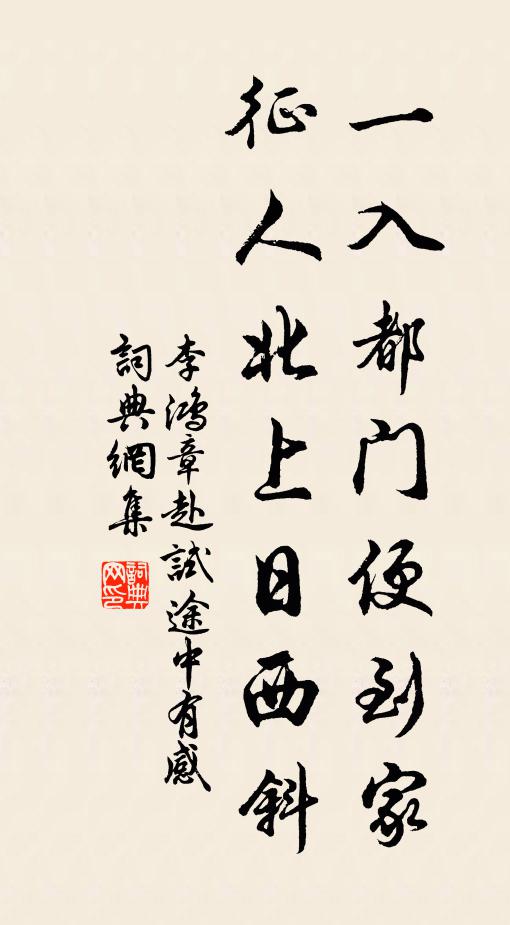 一入都门便到家
征人北上日西斜
李鴻章赴試途中有感
詞典網集
詞典
网印